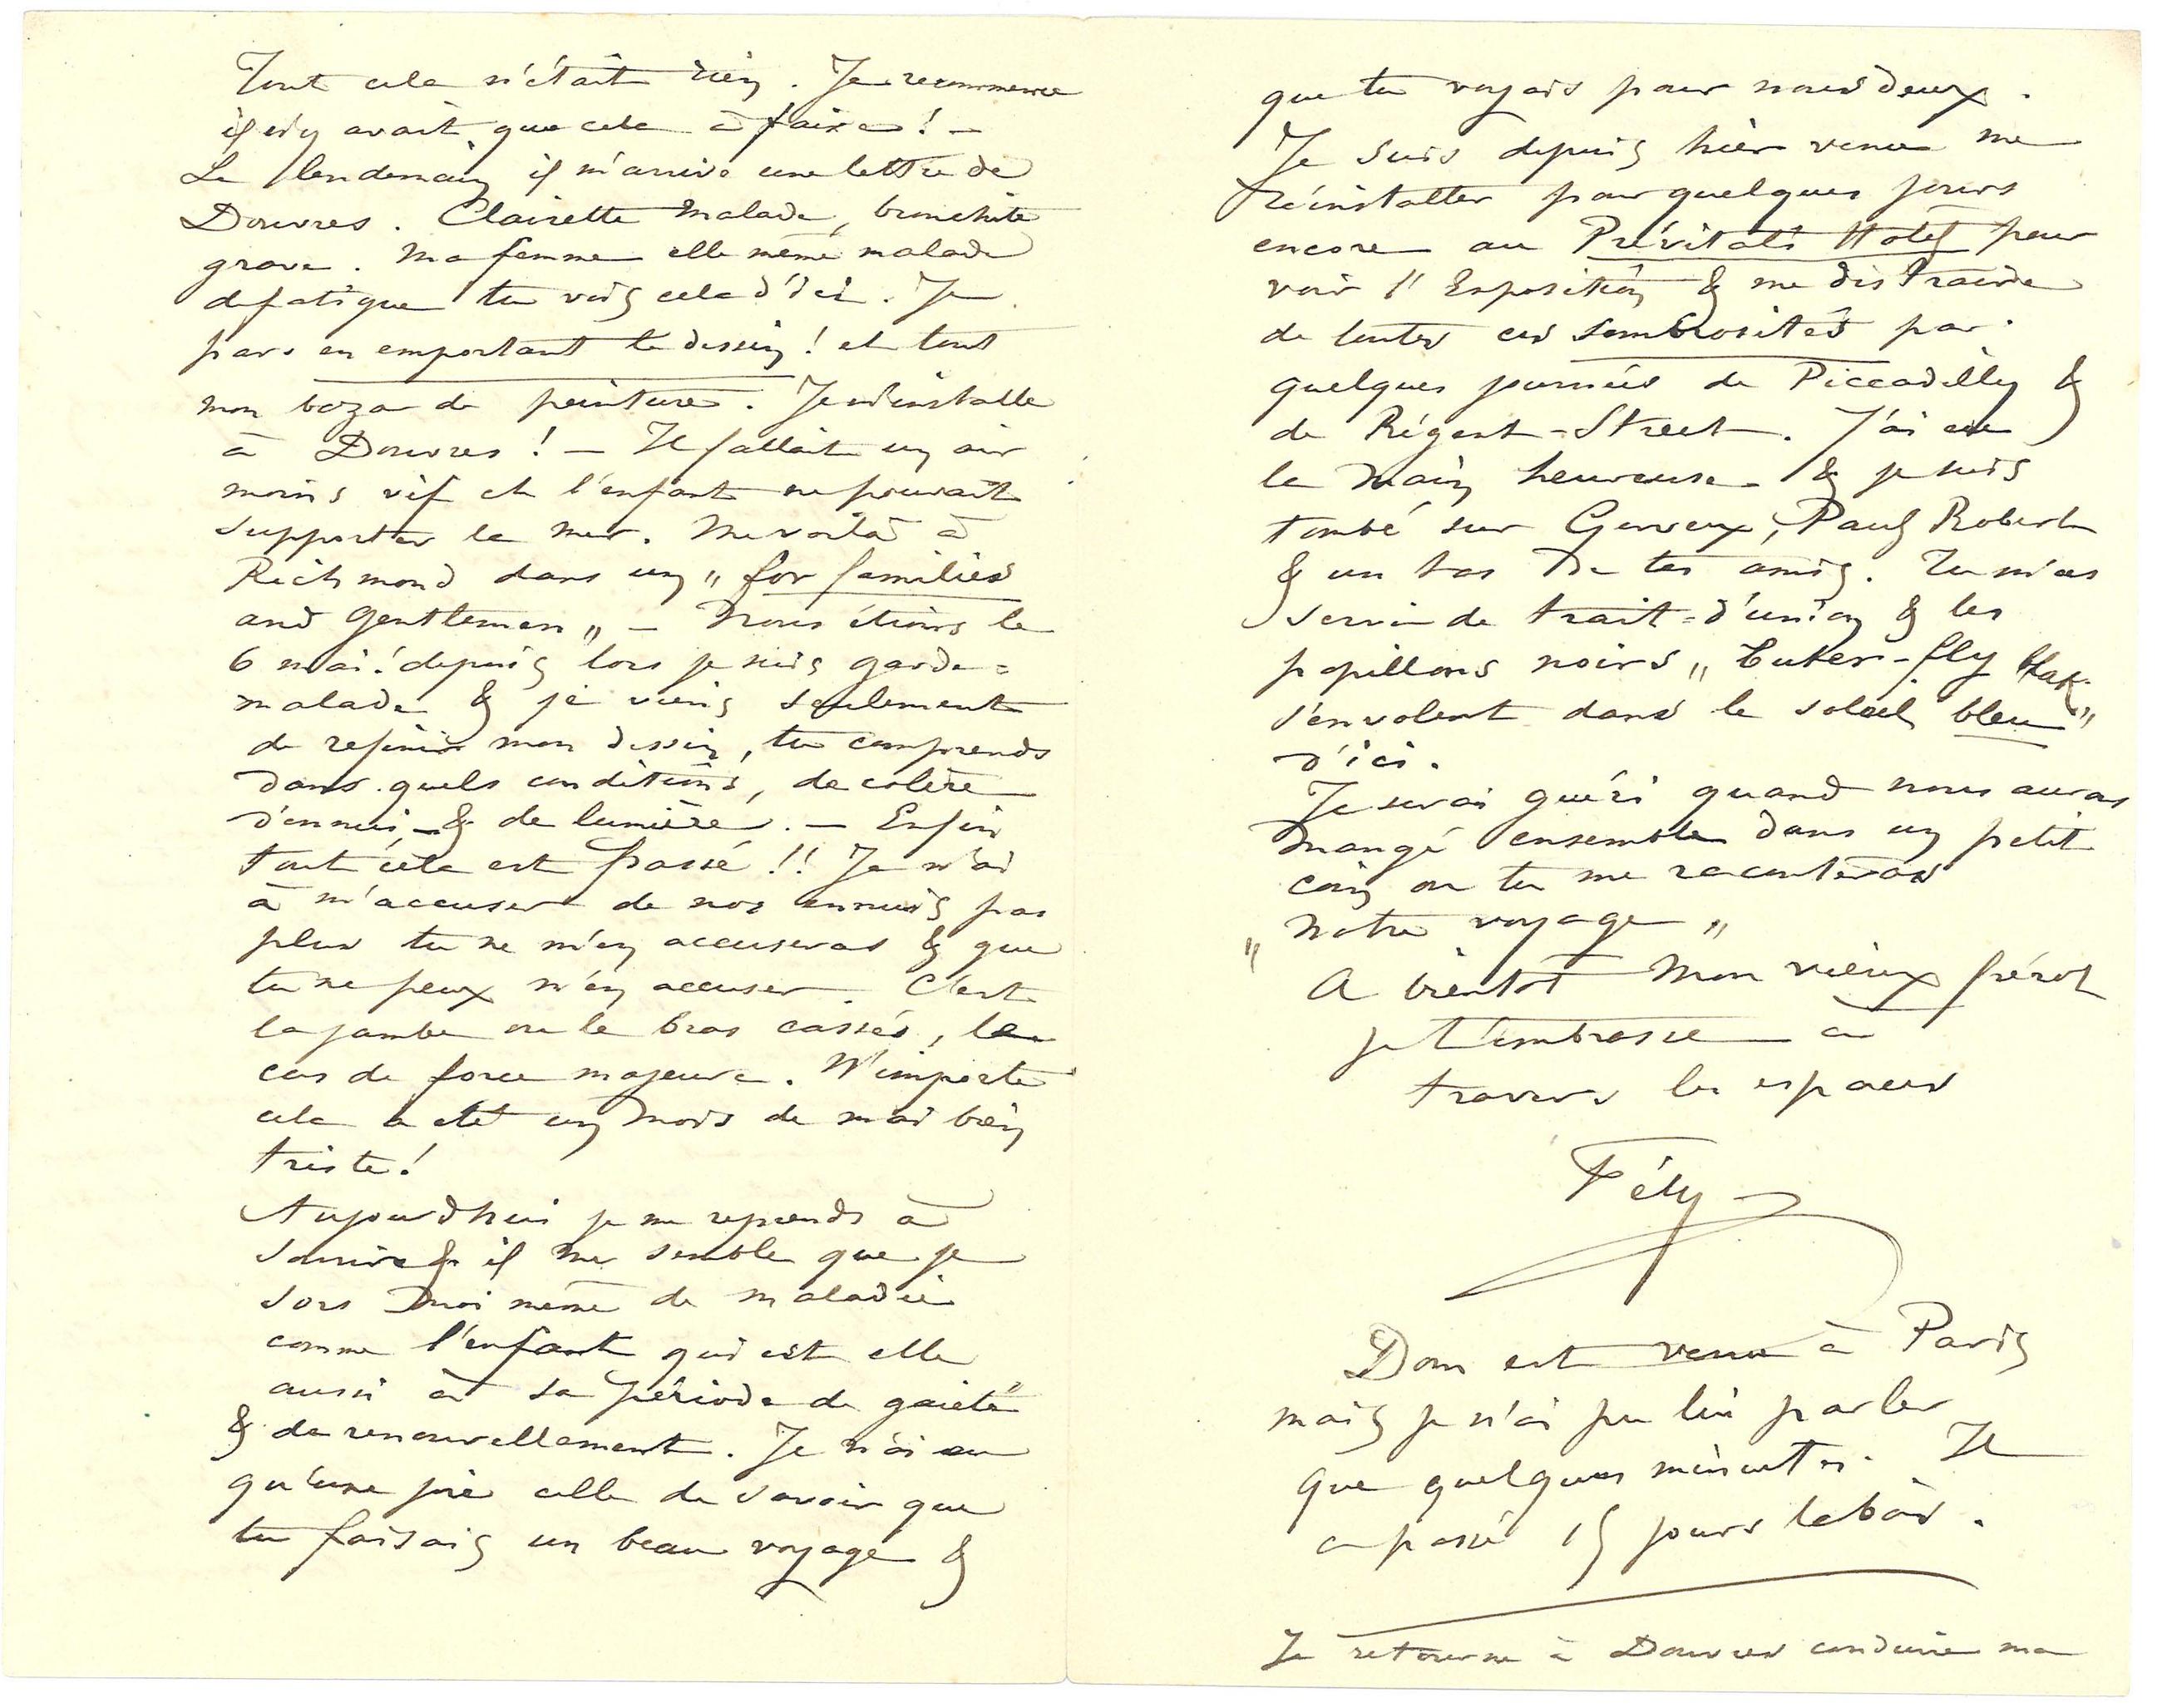 Tout cela n'était rien. Je recommence
il n'y avait que cela à faire! –
Le lendemain il m'arrive une lettre de
Douvres. Clairette malade, bronchite
grave. Ma femme elle même malade
de fatigue tu vois cela d'ici. Je
pars en emportant le dessin! et tout
mon bazar de peinture. Je m'installe
à Douvres! – Il fallait un air
moins vif et l'enfant ne pouvait
supporter la mer. Me voilà à
Richmond dans un „for families
and gentlemen„ – Nous étions le
6 mai! depuis lors je suis garde=
malade & je viens seulement
de refinir mon dessin, tu comprends
dans quels conditions, de colère
d'ennui, – & de lumière. – Enfin
tout cela est passé!! Je n'ai
à m'accuser de nos ennuis pas
plus tu ne m'en accuseras & que
tu ne peux m'en accuser. C'est
la jambe ou le bras cassés, le
cas de force majeure. N'importe
cela a été un mois de mai bien
triste!
Aujourd'hui je me reprends à
sourire & il me semble que je
sors moi même de maladie
comme l'enfant qui est elle
aussi à sa période de gaieté
& de renouvellement. Je n'ai eu
qu'une joie celle de savoir que
tu faisais un beau voyage &
que tu voyais pour nous deux.
Je suis depuis hier venu me
réinstaller pour quelques jours
encore au Prévitali Hotel pour
voir l'Exposition & me distraire
de toutes ces sombrosités par
quelques journées de Piccadilly &
de Régent-Street. J'ai eu
la main heureuse & je suis
tombé sur Gervex, Paul Robert
& un tas de tes amis. Tu m'as
servi de trait=d'union & les
papillons noirs „buter-fly blak„
s'envolent dans le soleil bleu
d'ici.
Je serai guéri quand nous aurons
mangé ensemble dans un petit
coin où tu me raconteras
„notre voyage„
A bientôt mon vieux frérot
je t'embrasse à
travers les espaces
Fély
Dom est venu à Paris
mais je n'ai pu lui parler
que quelques minutes. Il
a passé 15 jours labàs.
Je retourne à Douvres conduire ma